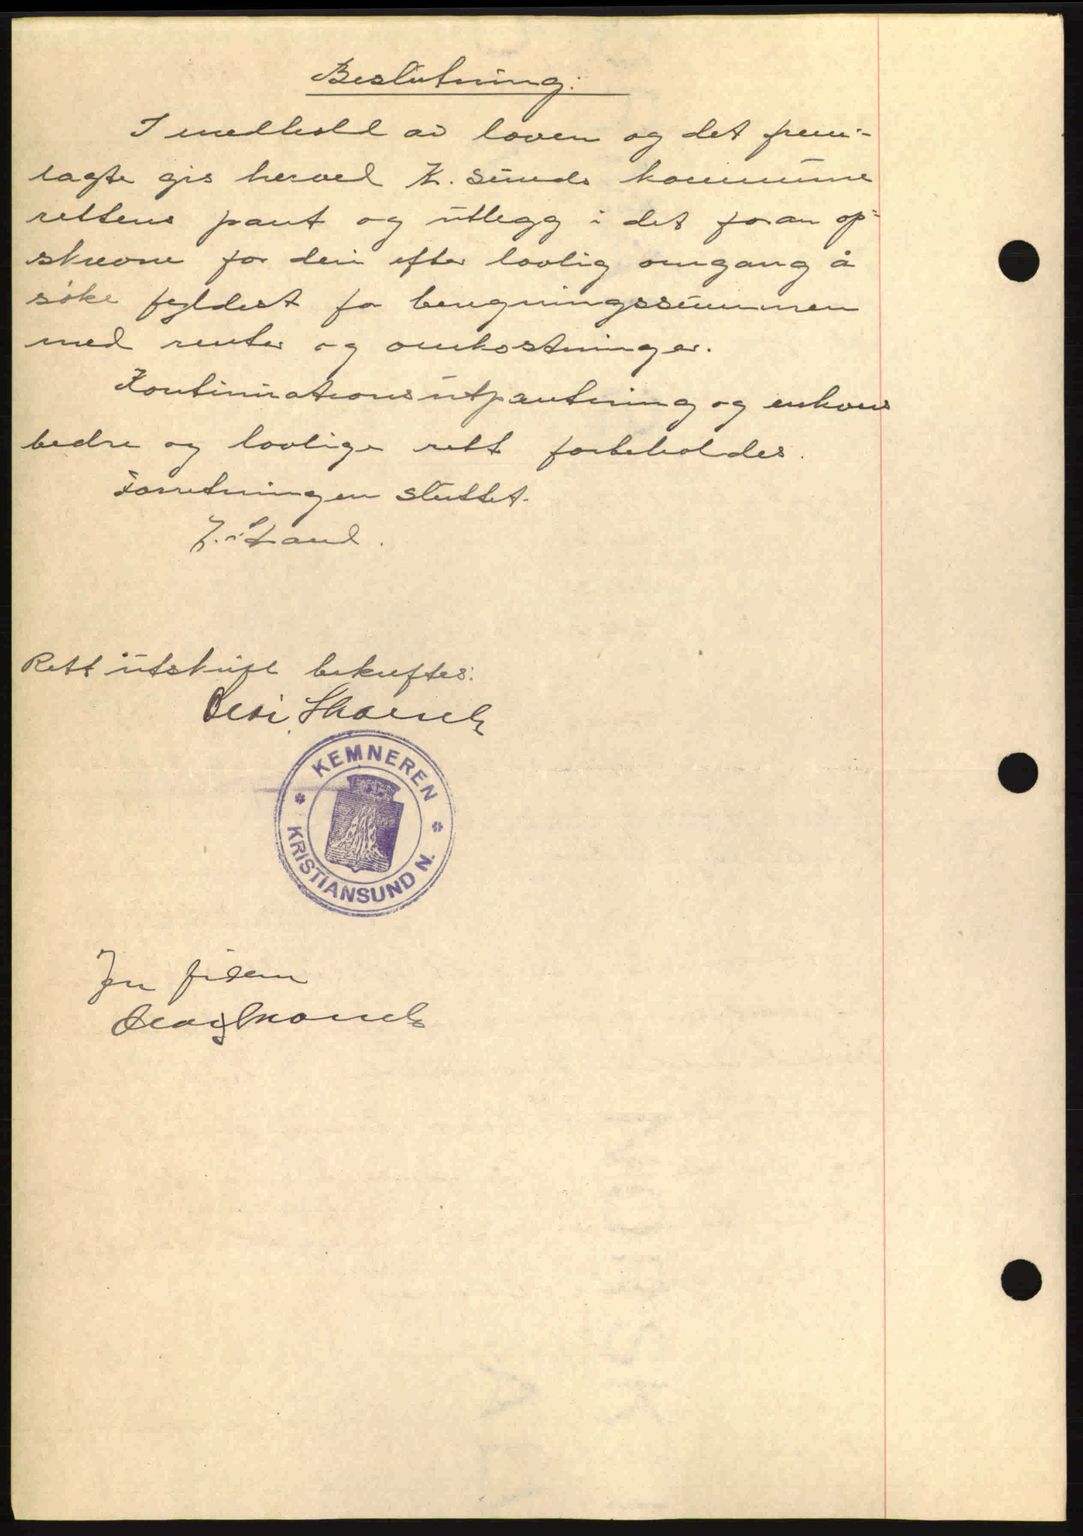 Beslutning:
I medhold av loven og det frem-
lagte gis herved K. sunds kommune
rettens pant og utlegg i det foran op-
skrevne for deri efter lovlig omgang å
søke fyldest for bevgningssummen
med renter og omkostninger.
Kontinuationsutpantning og enhver
bedre og lovlige rett forbeholdes.
Forretningen sluttet.
Rett utskrift bekreftes:
KEMNEREN
KRISTIANSUND N.